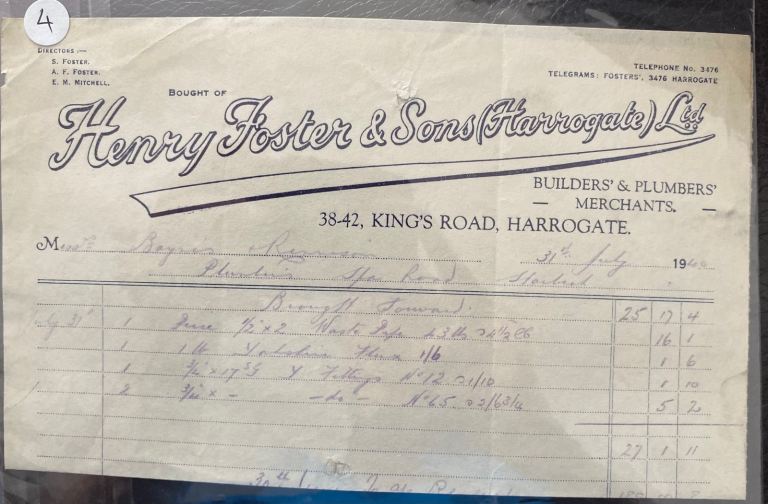 4
DIRECTORS :—
S. FOSTER.
A. F. FOSTER.
E. M. MITCHELL.
TELEPHONE No. 3476
TELEGRAMS: FOSTERS', 3476 HARROGATE
BOUGHT OF
Henry Foster & Sons (Harrogate) Ltd
BUILDERS' & PLUMBERS'
— MERCHANTS. —
38-42, KING'S ROAD, HARROGATE.
Messrs 31st July 1940
Plumbers Spa Road Starbeck
Brought Forward. 25 17 4
July 31st 1 Piece 1½ x 2 Waste Pipe 43 lbs 16 1
1 1 lb 1/6 1 6
1 ¾" x Y Fittings No 12 @ 1/10 1 10
2 ¾" x - -do- No 65 @ 2/6¾ 5 2
27 1 11